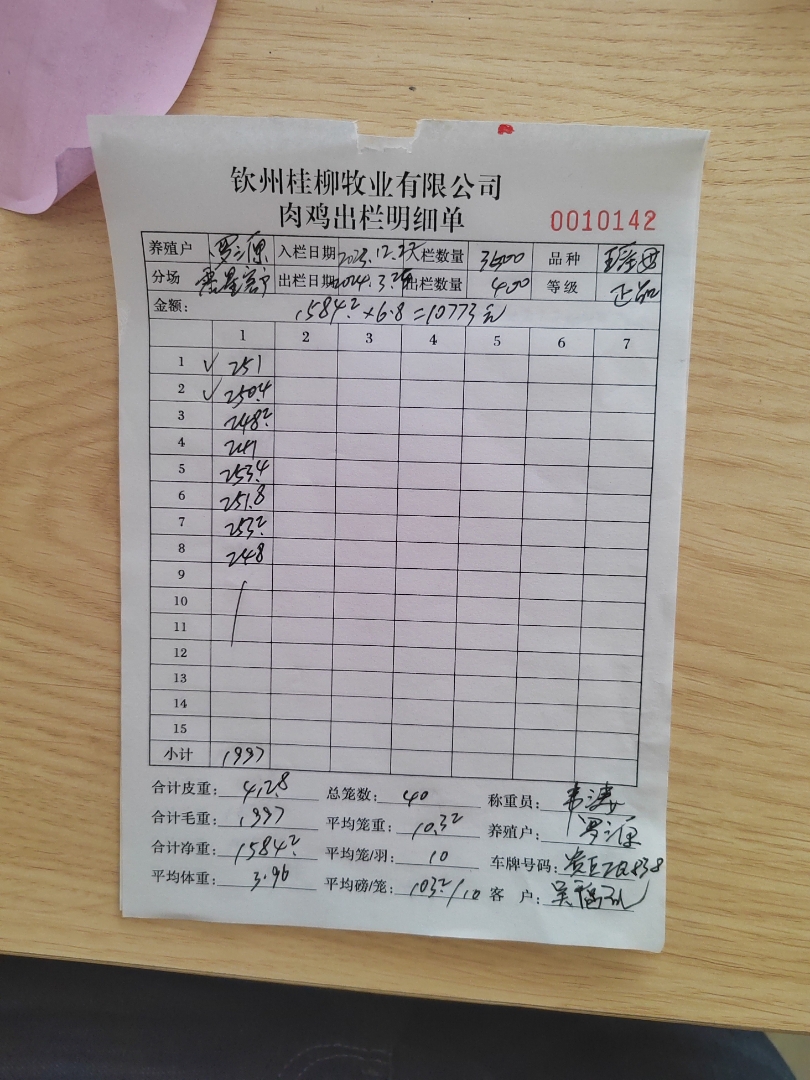 钦州桂柳牧业有限公司
肉鸡出栏明细单 0010142
养殖户 罗源 入栏日期 2023.12. 栏数量 品种
分场 出栏日期 2024.3. 出栏数量 400 等级 正品
金额: 1584.2×6.8=10773元
1 2 3 4 5 6 7
1 251
2 250.4
3 248.2
4 241
5 253.4
6 251.8
7 253.2
8 248
9
10
11
12
13
14
15
小计 1997
合计皮重: 412.8 总笼数: 40 称重员: 韦涛
合计毛重: 1997 平均笼重: 10.32 养殖户: 罗源
合计净重: 1584.2 平均笼/羽: 10 车牌号码:
平均体重: 3.96 平均磅/笼: 10.32/10 客 户: 吴